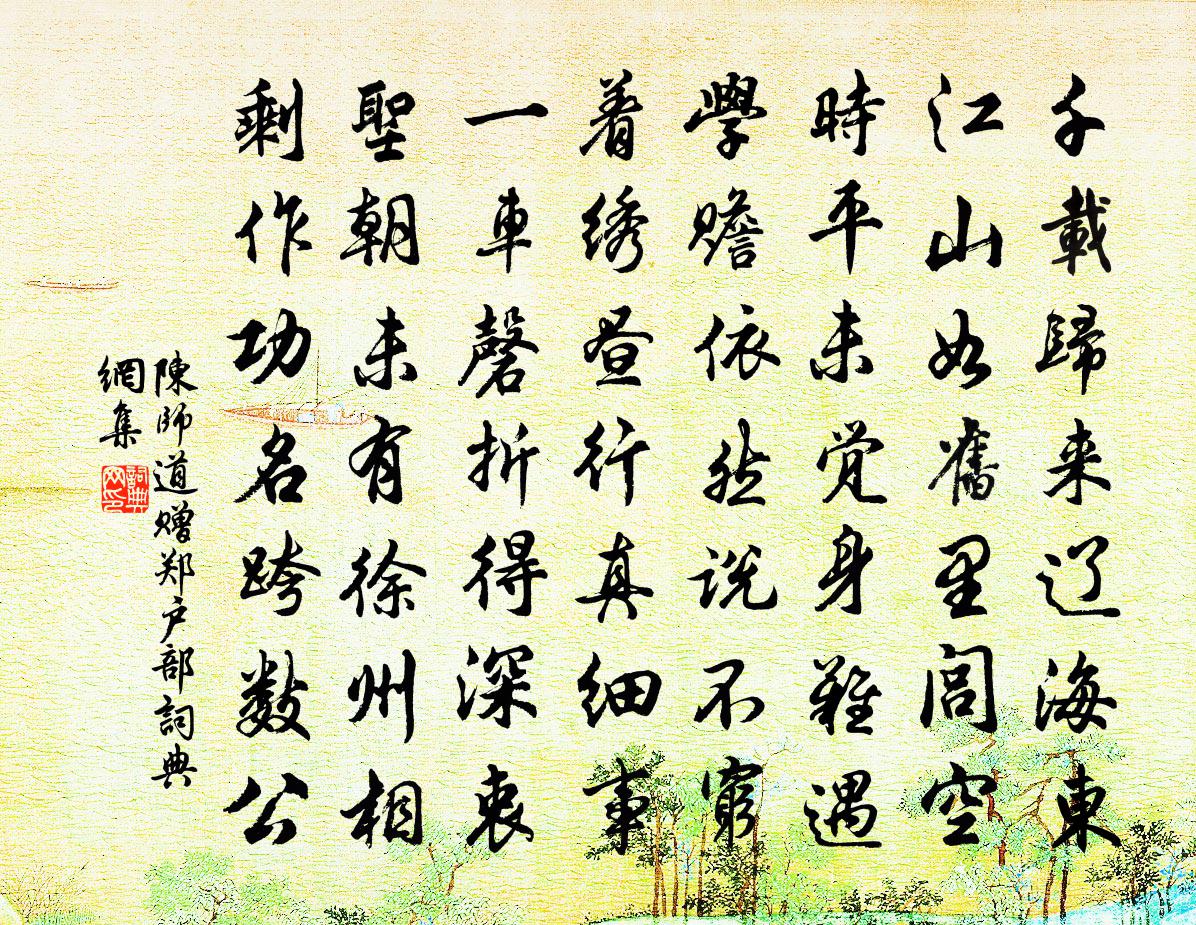 千載歸来辽海東
江山如舊里閭空
時平未觉身難遇
學贍依然说不窮
着绣昼行真细事
一車磬折得深衷
聖朝未有徐州相
剩作功名跨数公
陳師道赠郑户部詞典
網集
詞典
网印